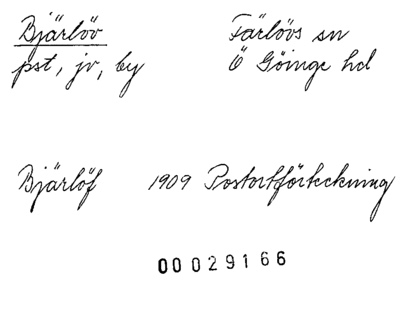 Bjärlöv Färlövs sn
pst, jv, by Ö Göinge hd
Bjärlöf 1909 Postortförteckning
00029166